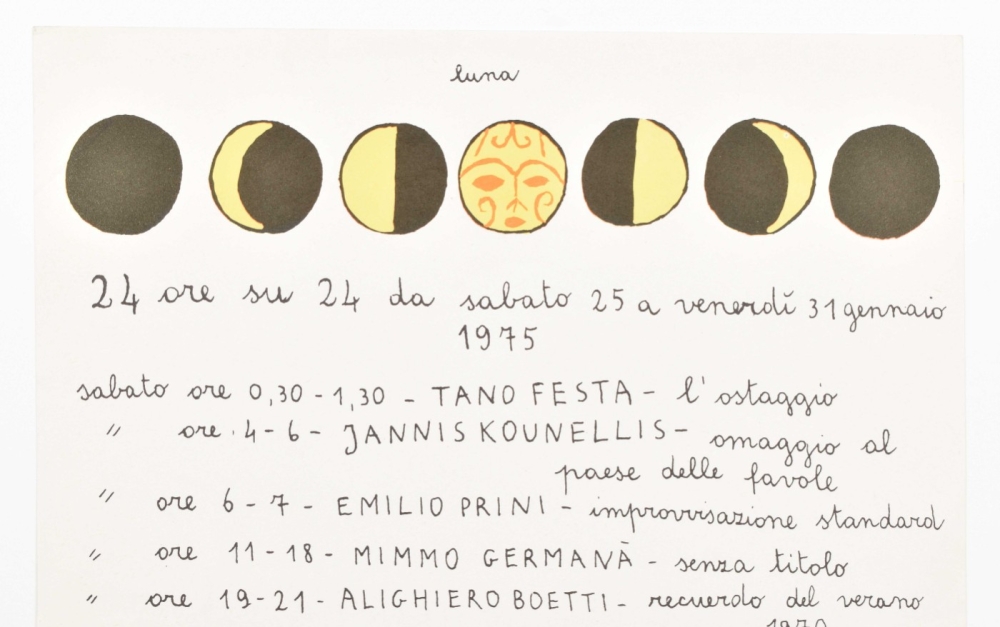 luna
24 ore su 24 da sabato 25 a venerdì 31 gennaio
1975
sabato ore 0,30 - 1,30 - TANO FESTA - l'ostaggio
" ore 4 - 6 - JANNIS KOUNELLIS - omaggio al
paese delle favole
" ore 6 - 7 - EMILIO PRINI - improvvisazione standard
" ore 11 - 18 - MIMMO GERMANÀ - senza titolo
" ore 19 - 21 - ALIGHIERO BOETTI - recuerdo del verano
1970